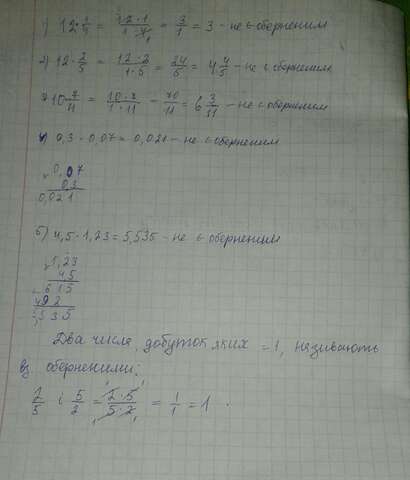 1) 12 · 1/4 = 12·1/1·4 = 3/1 = 3 - не є оберненим
2) 12 · 2/5 = 12·2/1·5 = 24/5 = 4 4/5 - не є оберненим
10 · 7/11 = 10·7/1·11 - 70/11 = 6 3/11 - не є оберненим
4) 0,3 · 0,07 = 0,021 - не є оберненим
0,07
0,3
0,021
5) 4,5 · 1,23 = 5,535 - не є оберненим
1,23
45
615
492
5535
Два числа, добуток яких = 1, називають
вз оберненими:
2/5 і 5/2 = 2·5/5·2 = 1/1 = 1 .